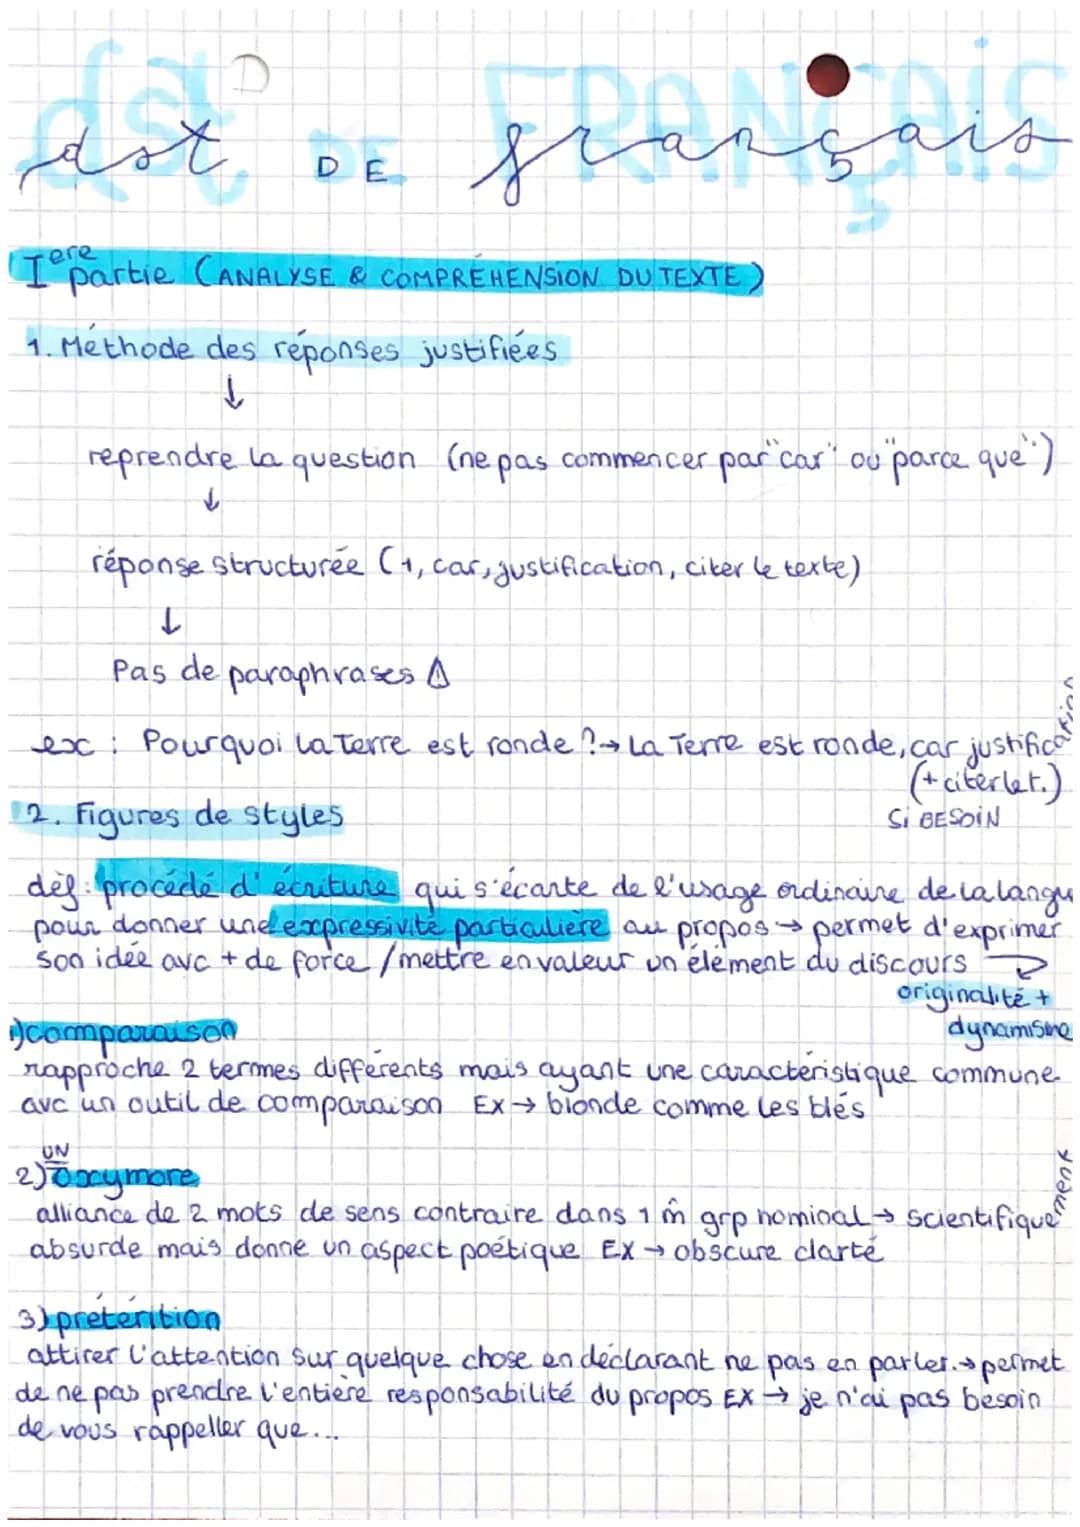 dst DE français
Iere partie (ANALYSE & COMPRÉHENSION DU TEXTE)
1. Méthode des réponses justifiées
↓
reprendre la question (ne pas commencer par "car" ou "parce que")
↓
réponse structurée (1, car, justification, citer le texte)
↓
Pas de paraphrases ⚠
ex : Pourquoi la Terre est ronde ? → La Terre est ronde, car justification
(+ citer le t.)
Si BESOIN
2. Figures de styles
déf: procédé d'écriture qui s'écarte de l'usage ordinaire de la langue
pour donner une expressivité particulière au propos → permet d'exprimer
son idée avc + de force / mettre en valeur un élément du discours
originalité +
dynamisme
1) comparaison
rapproche 2 termes différents mais ayant une caractéristique commune
avc un outil de comparaison Ex → blonde comme les blés
UN
2) oxymore
alliance de 2 mots de sens contraire dans 1 m̂ grp nominal → scientifiquement
absurde mais donne un aspect poétique Ex → obscure clarté
3) prétérition
attirer l'attention sur quelque chose en déclarant ne pas en parler. → permet
de ne pas prendre l'entière responsabilité du propos Ex → je n'ai pas besoin
de vous rappeller que...